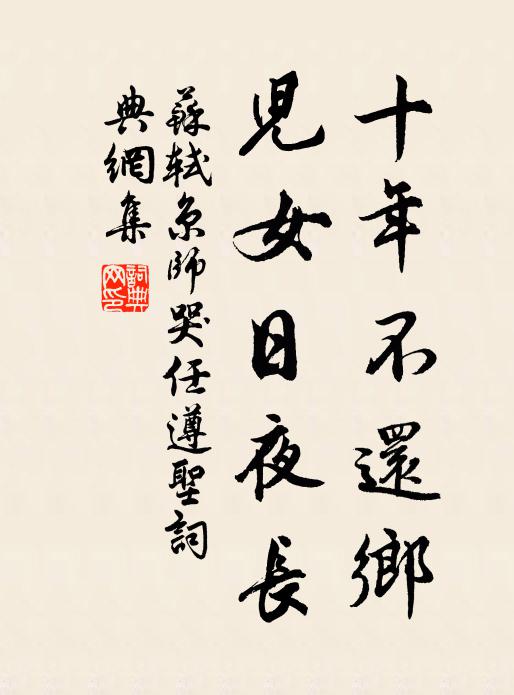 十年不還鄉
兒女日夜長
蘇軾京師哭任遵聖詞
典網集
詞典网印